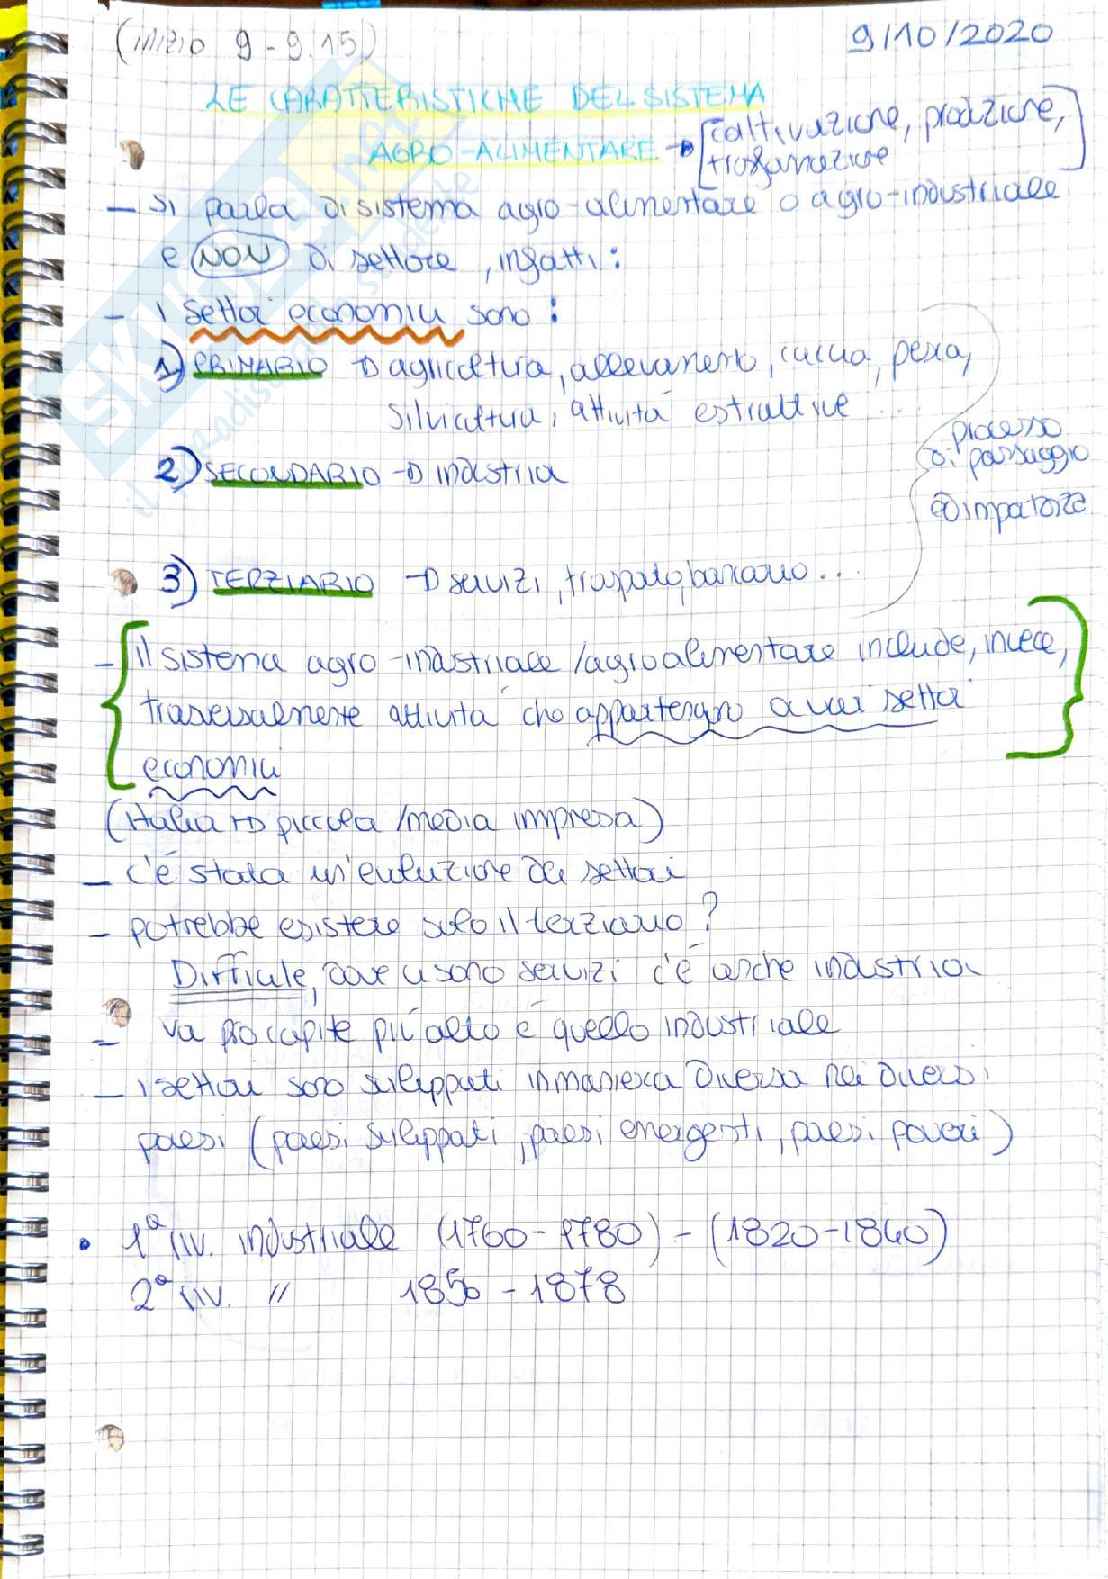 (inizio 9 - 9.15)
9/10/2020
LE CARATTERISTICHE DEL SISTEMA
AGRO-ALIMENTARE → [coltivazione, produzione,
trasformazione]
- si parla di sistema agro-alimentare o agro-industriale
e NON di settore, infatti:
- i settori economici sono:
1) PRIMARIO → agricoltura, allevamento, caccia, pesca,
silvicoltura, attività estrattive
processo
di passaggio
è importante
2) SECONDARIO → industria
3) TERZIARIO → servizi, trasporto, bancario...
- il sistema agro-industriale/agroalimentare include, invece,
trasversalmente attività che appartengono a vari settori
economici
(Italia → piccola/media impresa)
- c'è stata un'evoluzione dei settori
- potrebbe esistere solo il terziario?
Difficile, dove ci sono servizi c'è anche industria
- va procapite più alto è quello industriale
- i settori sono sviluppati in maniera diversa nei diversi
paesi (paesi sviluppati, paesi emergenti, paesi poveri)
• 1ª riv. industriale (1760-1780) - (1820-1840)
2ª riv. " 1850 - 1878